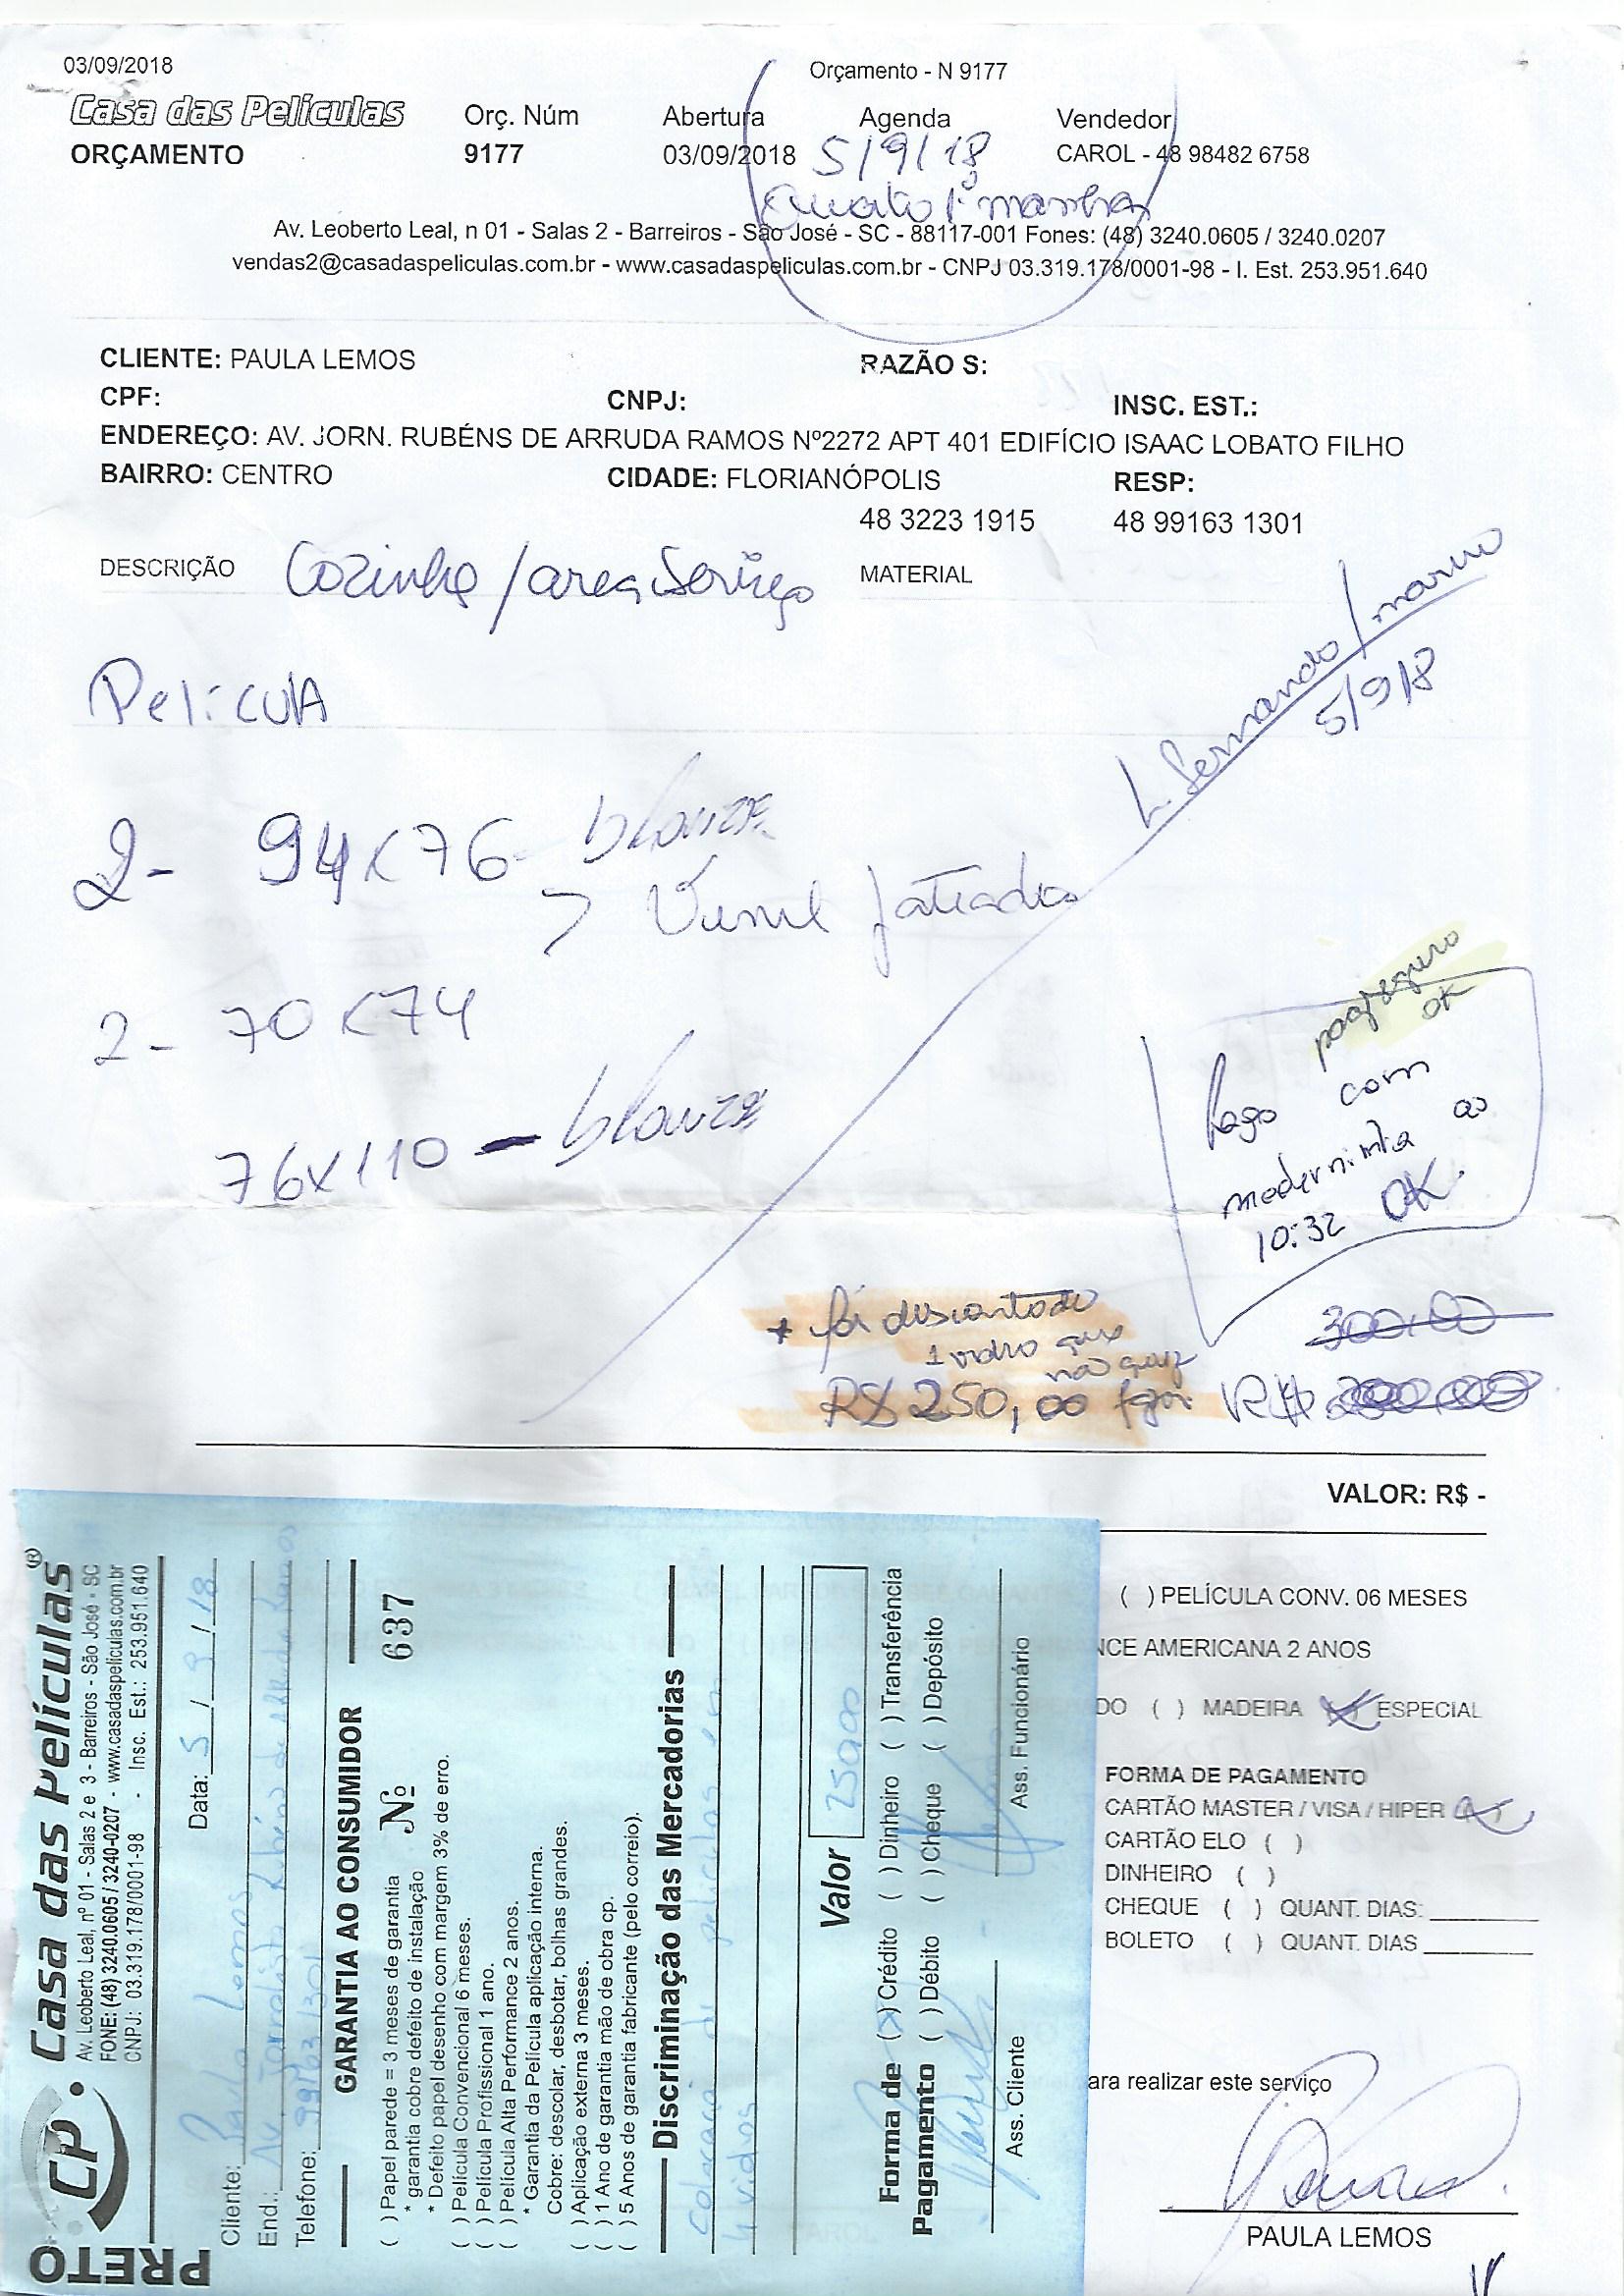 03/09/2018
Orçamento - N 9177
Casa das Películas
Orç. Núm
Abertura
Agenda
Vendedor
ORÇAMENTO
9177
03/09/2018
5/9/18
CAROL - 48 98482 6758
Av. Leoberto Leal, n 01 - Salas 2 - Barreiros - São José - SC - 88117-001 Fones: (48) 3240.0605 / 3240.0207
vendas2@casadaspeliculas.com.br - www.casadaspeliculas.com.br - CNPJ 03.319.178/0001-98 - I. Est. 253.951.640
CLIENTE: PAULA LEMOS
RAZÃO S:
CPF:
CNPJ:
INSC. EST.:
ENDEREÇO: AV. JORN. RUBÉNS DE ARRUDA RAMOS Nº2272 APT 401 EDIFÍCIO ISAAC LOBATO FILHO
BAIRRO: CENTRO
CIDADE: FLORIANÓPOLIS
RESP:
48 3223 1915
48 99163 1301
DESCRIÇÃO
Cozinha / area serviço
MATERIAL
L. fernando / marno
5/9/18
Película
2- 94x76 -
> Vinil jateado
2- 70x74
76x110 -
pagseguro
OK
Pago com
moderninha ao
10:32 OK.
* foi descontado
1 vidro que
não quiz
R$ 250,00
300,00
R$
VALOR: R$ -
( ) PELÍCULA CONV. 06 MESES
NCE AMERICANA 2 ANOS
DO ( ) MADEIRA (X) ESPECIAL
FORMA DE PAGAMENTO
CARTÃO MASTER / VISA / HIPER (X)
CARTÃO ELO ( )
DINHEIRO ( )
CHEQUE ( ) QUANT. DIAS:
BOLETO ( ) QUANT. DIAS
ara realizar este serviço
PAULA LEMOS
CP Casa das Películas®
Av. Leoberto Leal, nº 01 - Salas 2 e 3 - Barreiros - São José - SC
FONE: (48) 3240.0605 / 3240-0207 - www.casadaspeliculas.com.br
CNPJ: 03.319.178/0001-98 - Insc. Est.: 253.951.640
PRETO
Data: 5 / 9 / 18
Cliente: Paula Lemos
End.: Av. Jornalista Rubéns de Arruda Ramos
Telefone: 99163 1301
GARANTIA AO CONSUMIDOR
( ) Papel parede = 3 meses de garantia
Nº 637
* garantia cobre defeito de instalação
* Defeito papel desenho com margem 3% de erro.
( ) Película Convencional 6 meses.
( ) Película Profissional 1 ano.
( ) Película Alta Performance 2 anos.
* Garantia da Película aplicação interna.
Cobre: descolar, desbotar, bolhas grandes.
( ) Aplicação externa 3 meses.
( ) 1 Ano de garantia mão de obra cp.
( ) 5 Anos de garantia fabricante (pelo correio).
Discriminação das Mercadorias
colocação de películas em
4 vidros
Valor 250,00
Forma de Pagamento
(X) Crédito ( ) Dinheiro ( ) Transferência
( ) Débito ( ) Cheque ( ) Depósito
Ass. Cliente
Ass. Funcionário